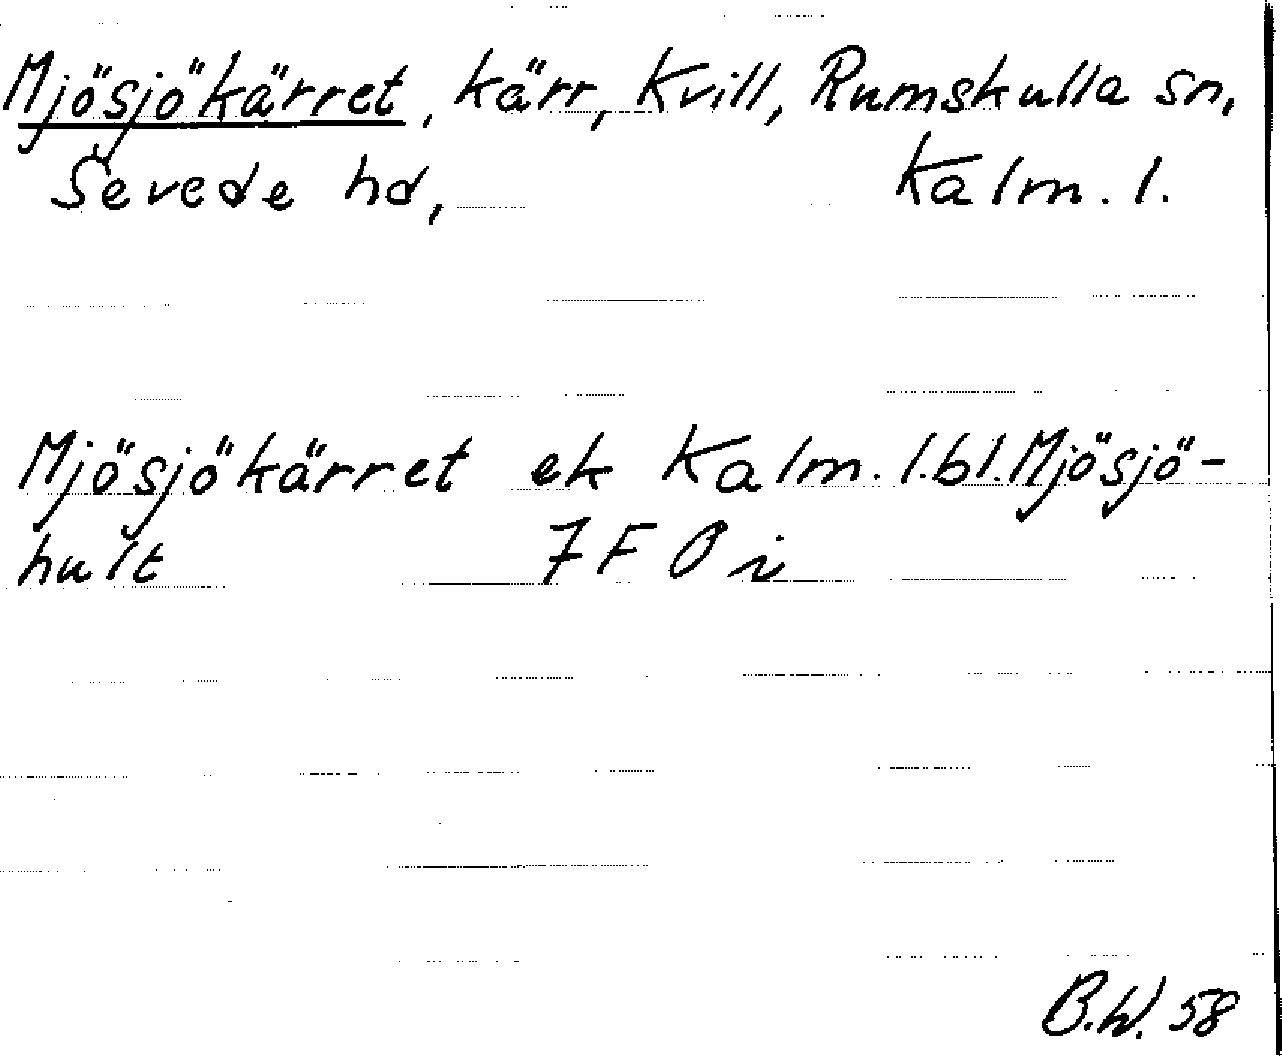 Mjösjökärret, kärr, Kvill, Rumskulla sn,
Sevede hd, Kalm. l.
Mjösjökärret ek Kalm. l. bl. Mjösjö-
hult 7F 0 i
B.W. 58